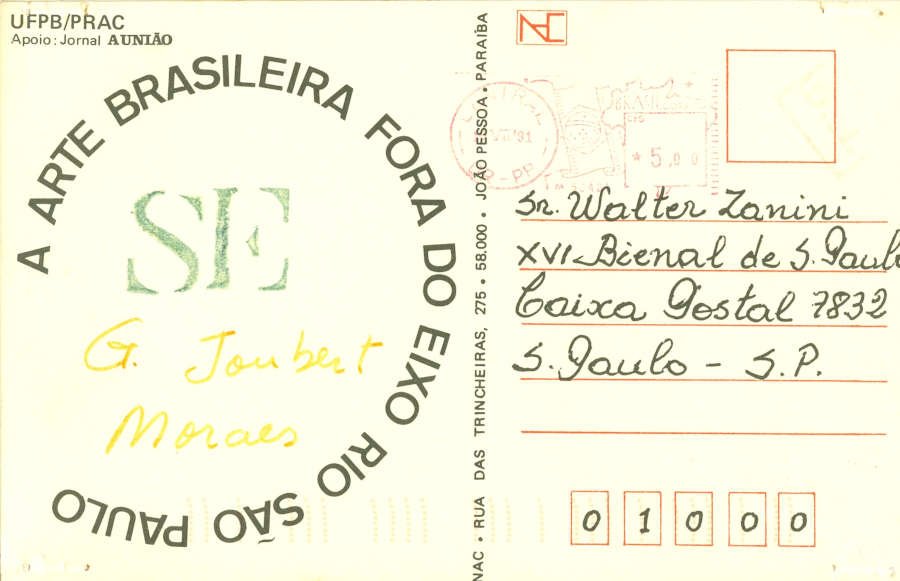 UFPB/PRAC
Apoio: Jornal A UNIÃO
A ARTE BRASILEIRA FORA DO EIXO RIO SÃO PAULO
SE
G. Joubert
Moraes
NAC • RUA DAS TRINCHEIRAS, 275 • 58.000 • JOÃO PESSOA • PARAÍBA
NAC
BRASIL
* 5,00
Sr. Walter Zanini
XVI Bienal de S. Paulo
Caixa Postal 7832
S. Paulo - S.P.
0 1 0 0 0